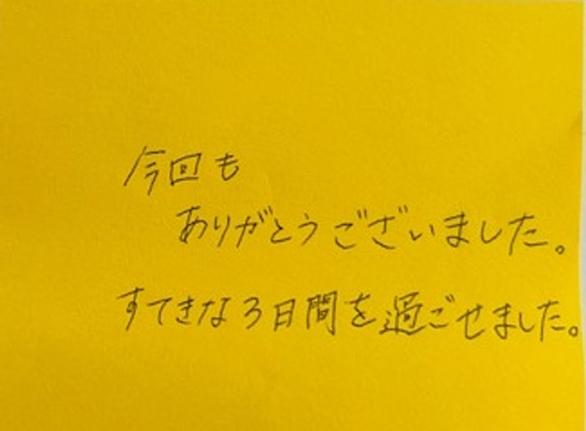 今回も
ありがとうございました。
すてきな3日間を過ごせました。